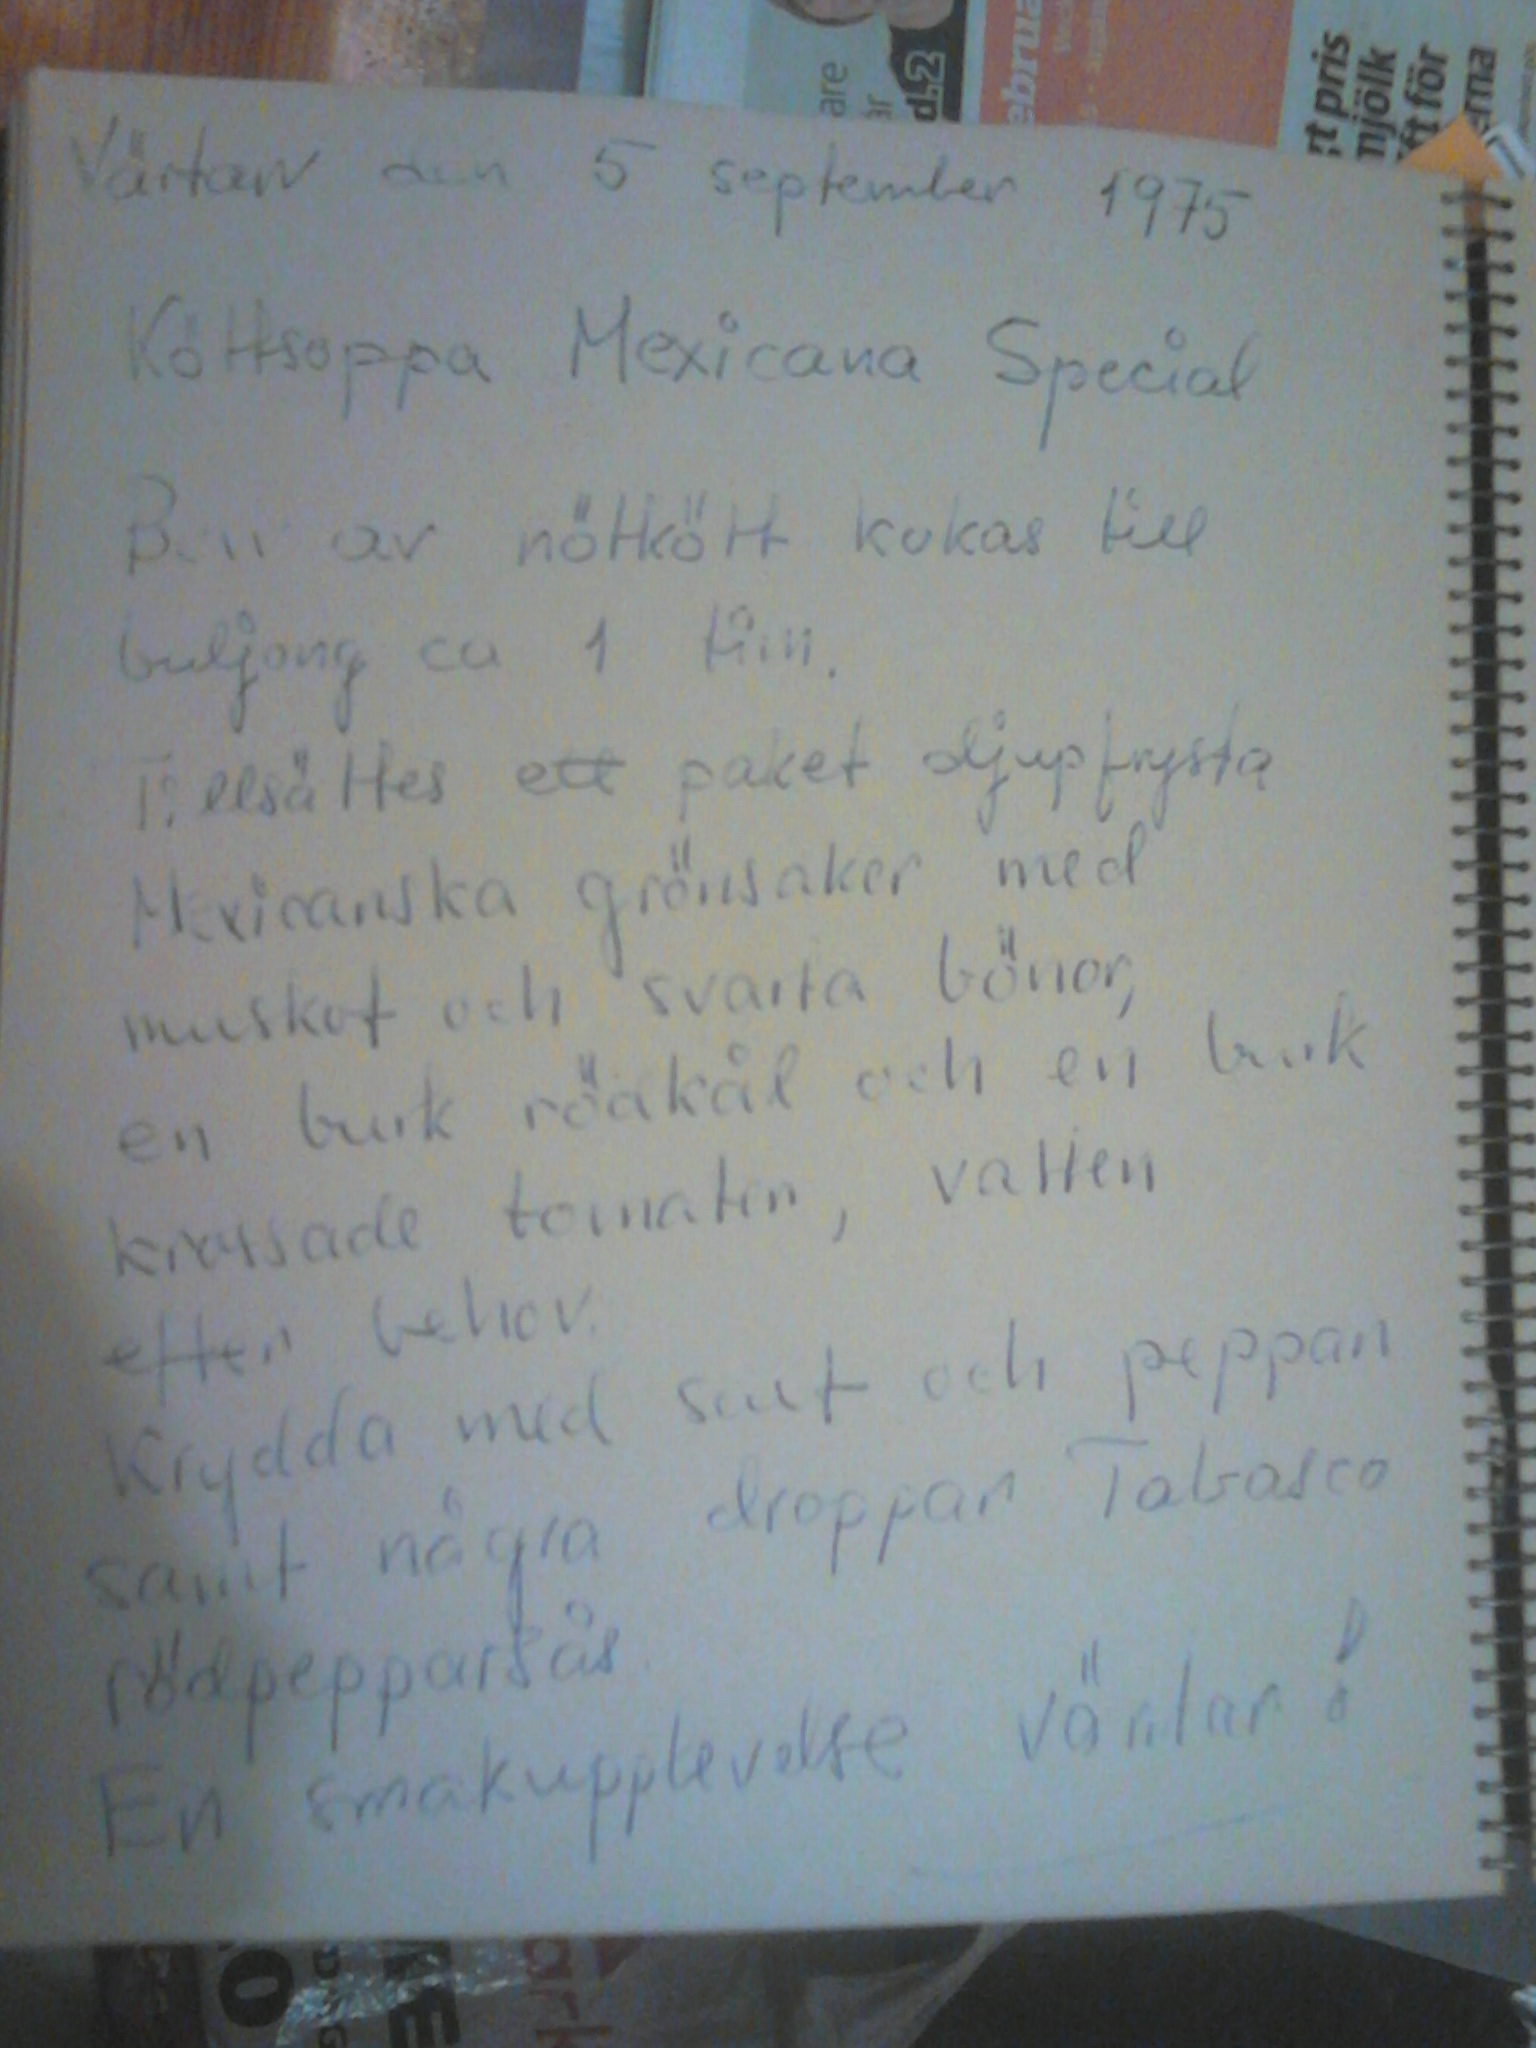 are
är
d.2
ebrua
rt pris
mjölk
ft för
erna
Värtan den 5 september 1975
Köttsoppa Mexicana Special
Ben av nötkött kokas till
buljong ca 1 tim.
Tillsättes ett paket djupfrysta
Mexicanska grönsaker med
muskot och svarta bönor,
en burk rödkål och en burk
krossade tomater, vatten
efter behov.
Krydda med salt och peppar
samt några droppar Tabasco
rödpepparsås.
En smakupplevelse väntar!